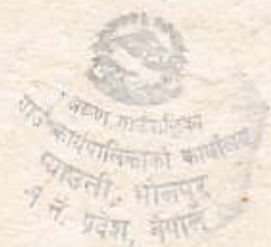 अरुण गाउँपालिका
गाउँ कार्यपालिकाको कार्यालय
प्याउली, भोजपुर
१ नं. प्रदेश, नेपाल